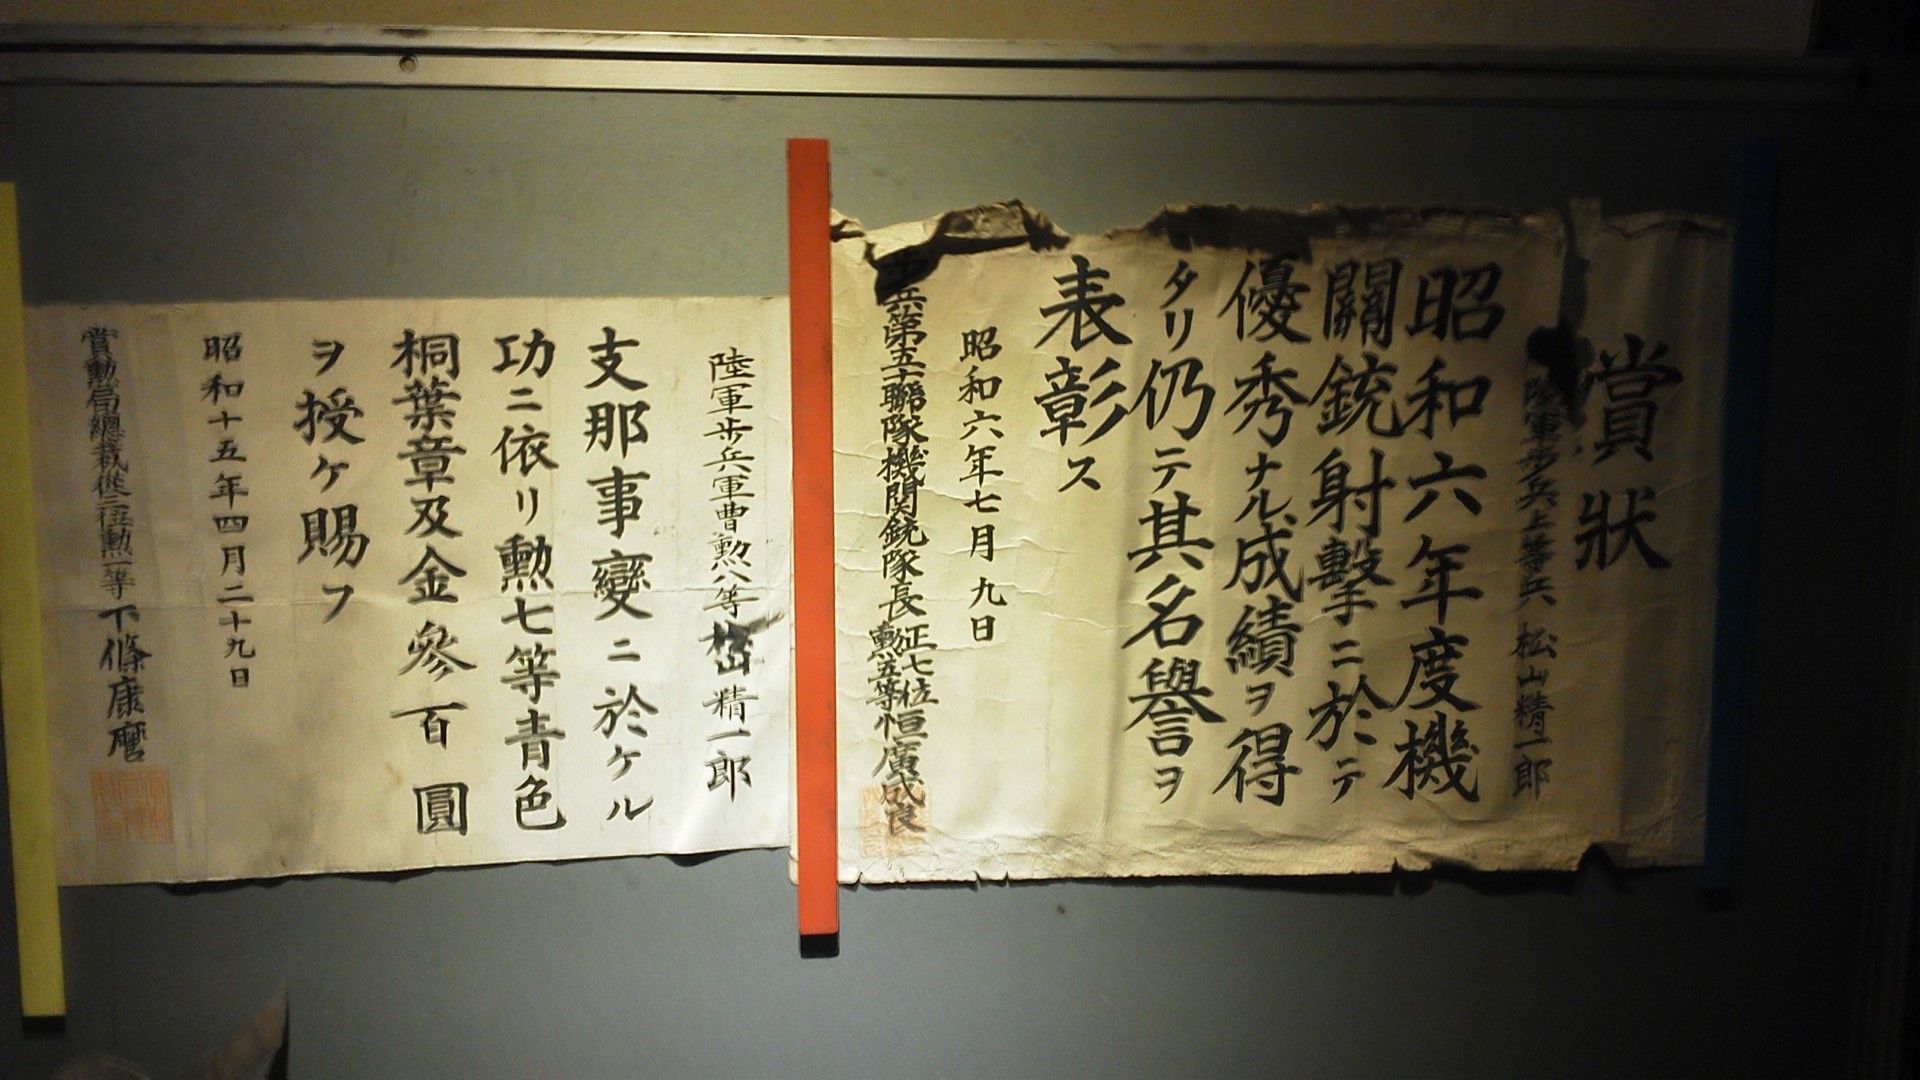 賞狀
陸軍步兵上等兵 松山精一郎
昭和六年度機
關銃射擊ニ於テ
優秀ナル成績ヲ得
タリ仍テ其名譽ヲ
表彰ス
昭和六年七月九日
步兵第五十聯隊機関銃隊長 正七位勲五等 恒廣成良
陸軍步兵軍曹勲八等 松山精一郎
支那事變ニ於ケル
功ニ依リ勲七等青色
桐葉章及金參百圓
ヲ授ケ賜フ
昭和十五年四月二十九日
賞勲局總裁從三位勲一等 下條康麿